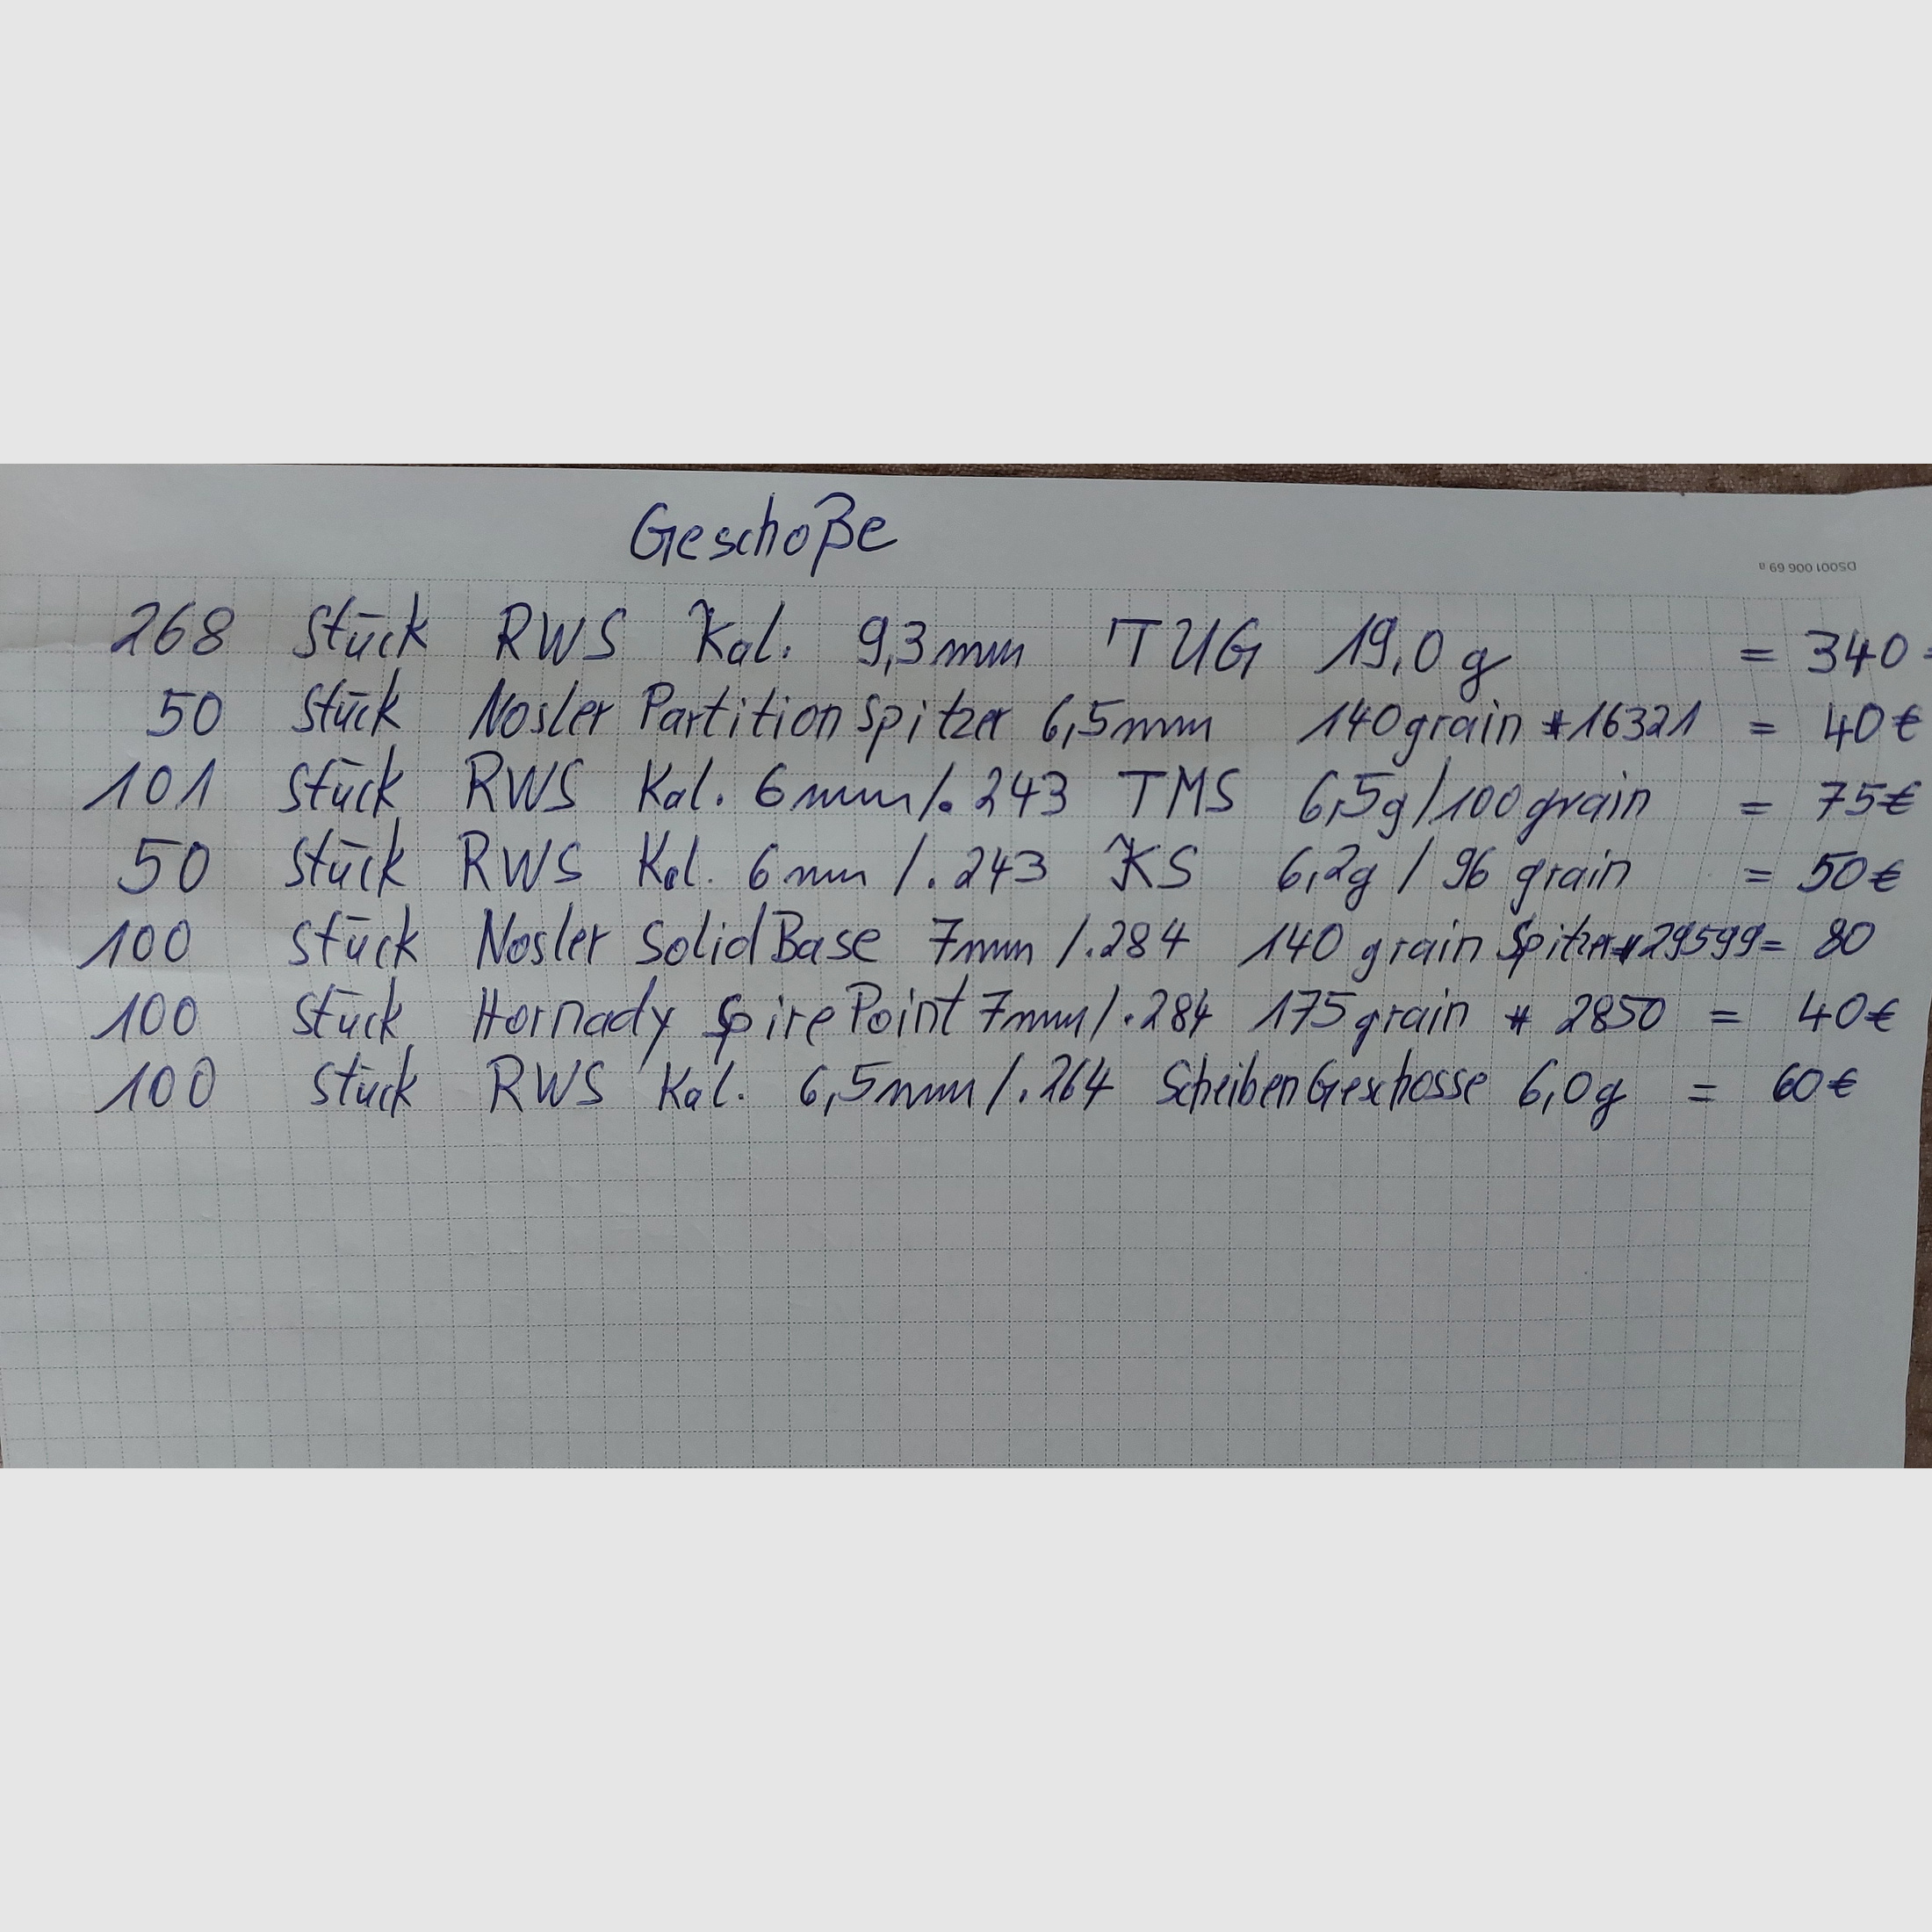 Geschoße
DS001 006 69 a
268 Stück RWS Kal. 9,3mm TUG 19,0 g = 340
50 Stück Nosler Partition Spitzer 6,5mm 140grain *16321 = 40€
101 Stück RWS Kal. 6mm/.243 TMS 6,5g/100grain = 75€
50 Stück RWS Kal. 6mm/.243 KS 6,2g/96 grain = 50€
100 Stück Nosler Solid Base 7mm/.284 140 grain Spitzer*29599= 80
100 Stück Hornady Spire Point 7mm/.284 175grain * 2850 = 40€
100 Stück RWS Kal. 6,5mm/.264 Scheiben Geschosse 6,0g = 60€